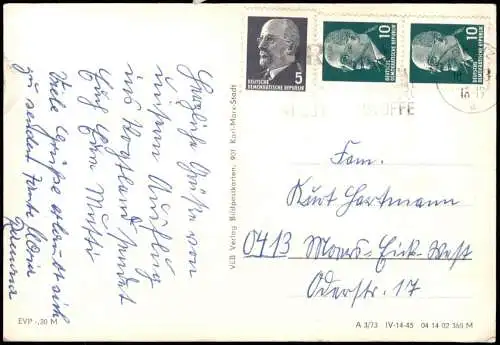 Herzliche Grüße von
unserem Ausflug
ins Vogtland sendet
Euch Eure Mutti
Viele Grüße erlaubt sich
zu senden Tante Maria
EVP -,20 M
VEB Verlag Bildpostkarten, 901 Karl-Marx-Stadt
5
DEUTSCHE
DEMOKRATISCHE REPUBLIK
10
DEUTSCHE
DEMOKRATISCHE REPUBLIK
10
DEUTSCHE
DEMOKRATISCHE REPUBLIK
Fam.
Kurt Hartmann
0413 Moers-Eick-West
Oderstr. 17
A 3/73 IV-14-45 04 14 02 365 M